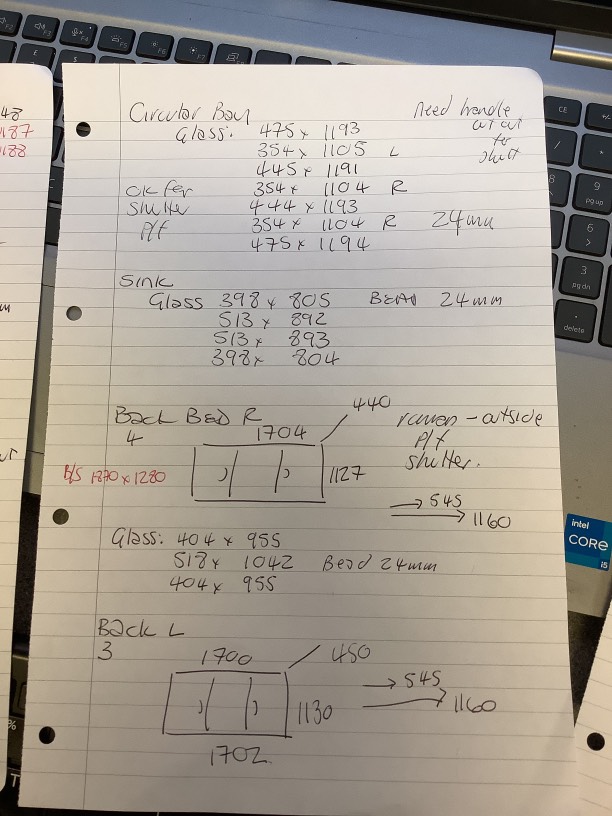 Circular Bay
Need handle
cut out
to
shut
Glass: 475 x 1193
354 x 1105 L
445 x 1191
ok for 354 x 1104 R
shutter 444 x 1193
P/f 354 x 1104 R 24mm
475 x 1194
Sink
Glass 398 x 805 BEAD 24mm
513 x 892
513 x 893
398 x 804
Back BED R
4
1704
440
outside
P/f
shutter.
B/S 1870 x 1280
1127
545
1160
Glass: 404 x 955
518 x 1042 Bead 24mm
404 x 955
Back L
3
1700
450
1130
545
1160
1702
48
1187
1188
intel
CORE
i5
CE
9
pg up
6
3
pg dn
delete